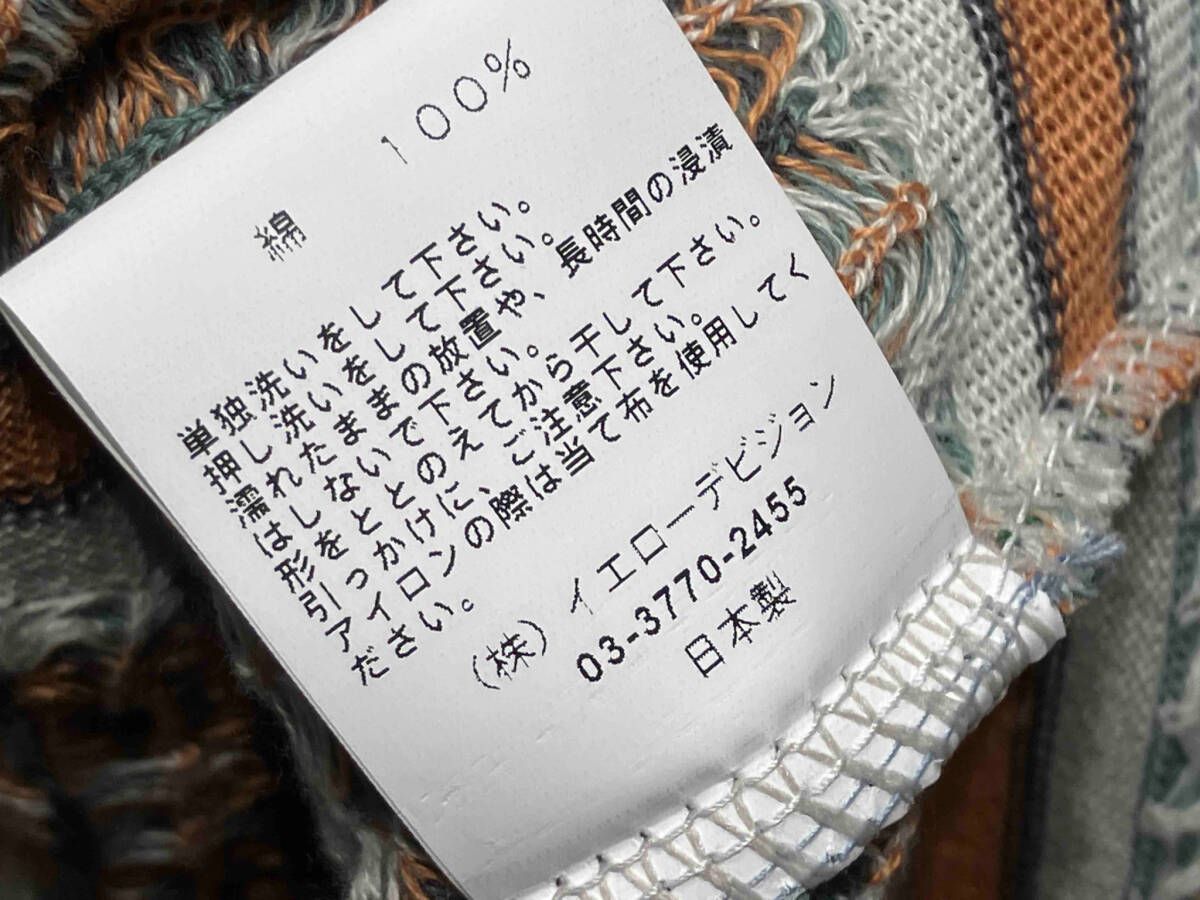 綿 100%
単独洗いをして下さい。
押し洗いをして下さい。
濡れたままの放置や、長時間の浸漬
はしないで下さい。
形をととのえてから干して下さい。
引っかけに、ご注意下さい。
アイロンの際は当て布を使用してく
ださい。
(株) イエローデビジョン
03-3770-2455
日本製